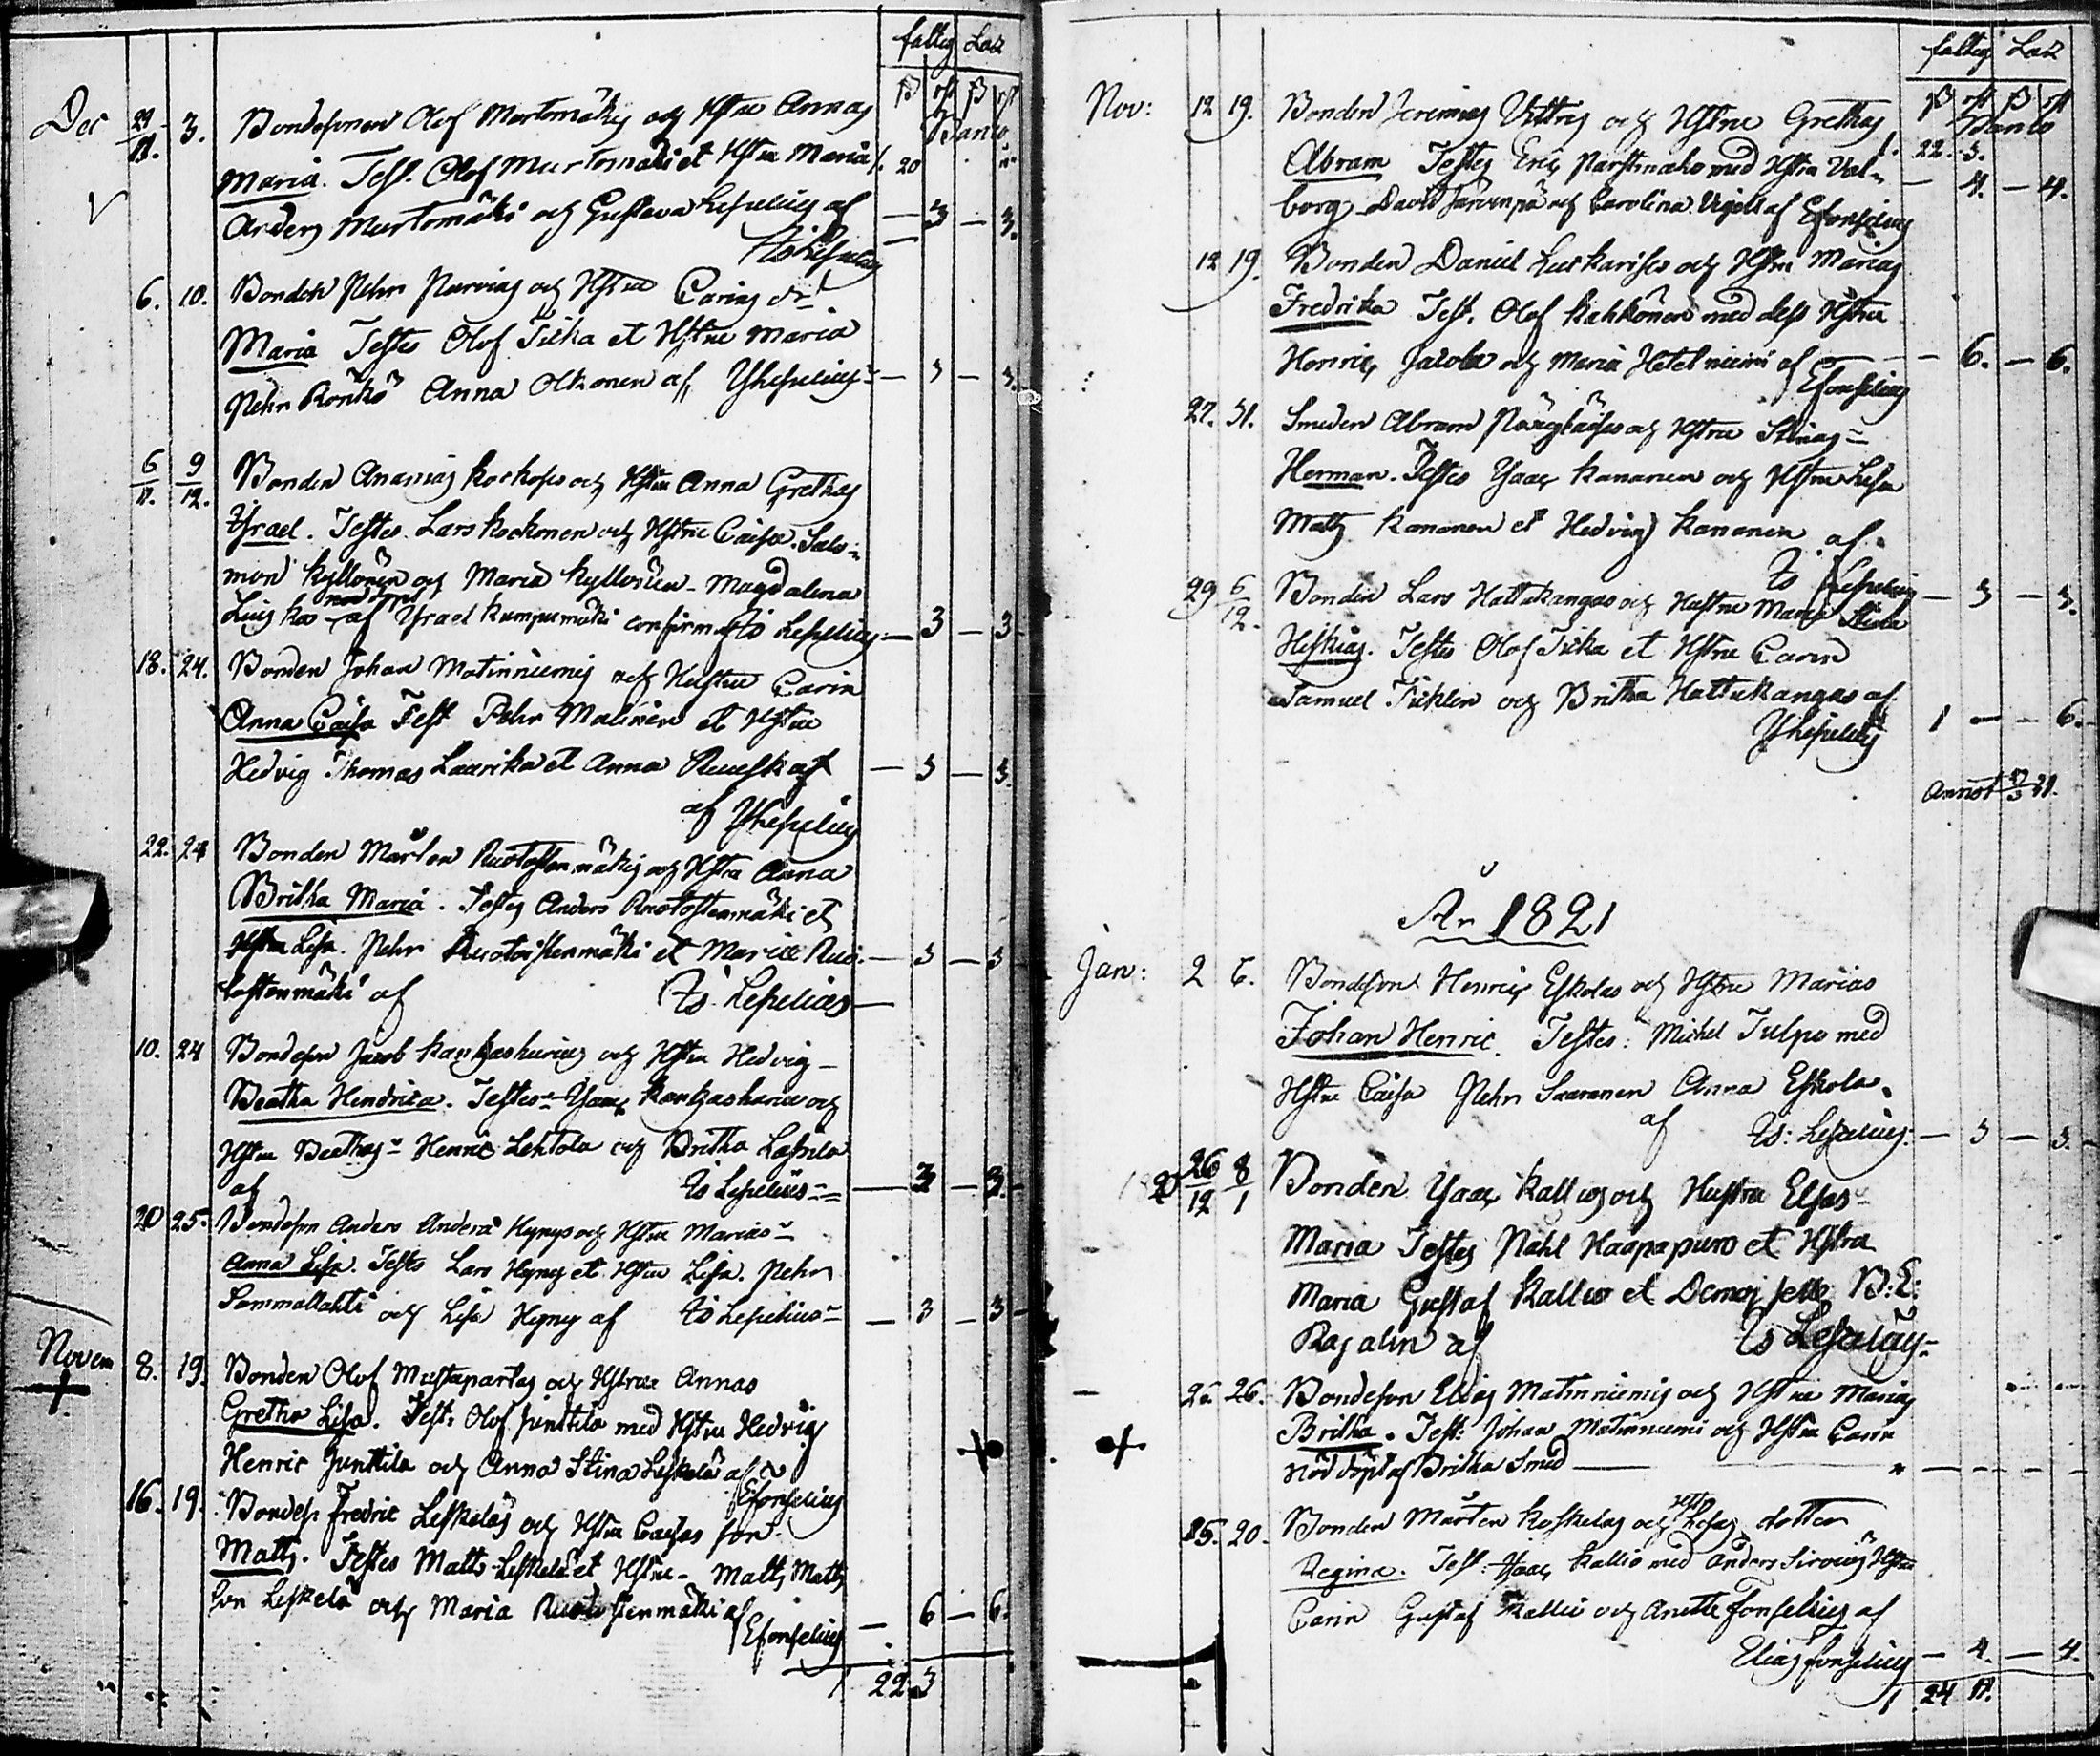 fattig Laz
ß rst ß rst
Banco
Dec 29/11. 3. Bondesonen Olof Murtomäkis och Hstru Annas
Maria. Test. Olof Murtomäki et Hstru Maria 1. 20
Anders Murtomäki och Gustava Lesselius af — 3 — 3.
Is Lesselius
6. 10. Bonden Pehr Parvias och Hstru Carins dr
Maria Testes Olof Tikka et Hstru Maria
Pehr Rönkö Anna Olkonen af Is Lesselius — 3 — 3.
6/11. 9/12. Bonden Ananias Kockos och Hstru Anna Grethas
Israel. Testes Lars Kockonen och Hstru Caisa. Salo-
mon Kyllönen och Maria Kyllönen - Magdalena
nöd döpt
af Israel Kumpumäki confirm. af Is Lesselius — 3 — 3
18. 24. Bonden Johan Matinniemis och Hustru Carin
Anna Caisa Test Pehr Malinen et Hstru
Hedvig Thomas Laurika et Anna — 3 — 3.
af Is Lesselius
22. 24 Bonden Mårten Ruotoistenmäkis och Hstru Anna
Britha Maria. Testes Anders Ruotoistenmäki et
Hstru Lisa. Pehr Ruotoistenmäki et Maria Ruo- — 3 — 3
toistenmäki af Is. Lesselius —
10. 24 Bondeson Jacob Kangasharius och Hstru Hedvig
Beatha Hendrica. Testes Isaac Kangasharu och
Hstru Beathas Henric Lehtola och Britha Lassila
af Is Lesselius — 3 — 3.
20 25. Bondeson Anders Anders Hyrys och Hstru Marias
Anna Lisa. Testes Lars Hyry et Hstru Lisa. Pehr
Sammallahti och Lisa Hyry af Is Lesselius — 3 — 3
Novem 8. 19. Bonden Olof Mustapartas och Hstru Annas
Gretha Lisa. Test: Olof Junttila med Hstru Hedvig
Henric Junttila och Anna Stina Leskelä af
E Fonselius
16. 19. Bondes. Fredric Leskeläs och Hstru Caisas son
Matts. Testes Matts Leskelä et Hstru - Matts Matts
son Leskelä och Maria Ruotoistenmäki af — 6 — 6.
E Fonselius
1 22. 3
fattig Laz
ß rst ß rst
Banco
Nov: 12 19. Bonden Jeremias och Hstru Grethas 1. 22. 3.
Abram Testes Eric med Hstru Val-
borg David Järvenpä och Carolina af E Fonselius — 4. — 4.
12 19. Bonden Daniel Luckaris och Hstru Marias
Fredrika Test. Olof Kahkonen med dess Hstru
Henric Jacola och Maria Hetelniemi af — 6. — 6.
E Fonselius
27. 31. Smeden Abram och Hstru Stinas
Herman. Testes Isaac Kananen och Hstru Lisa
Matts Kananen et Hedvig Kananen af
Is Lesselius — 3 — 3.
29 6/12. Bonden Lars Hattukangas och Hustru Maria Stina
Hiskias. Testes Olof Tikka et Hstru Carin
Samuel Tikkinen och Britha Hattukangas af
Is Lesselius 1 — — 6.
Annot 27/3 21.
År 1821
Jan: 2 6. Bondeson Henric Eskolas och Hstru Marias
Johan Henric. Testes: Michel Tulpo med
Hstru Caisa Pehr Saaranen Anna Eskola
af Is: Lesselius. — 3 — 3.
26/12 8/1 Bonden Isaac Kallios och Hustru Elsas
Maria Testes Påhl Haapapuro et Hstru
Maria Gustaf Kallio et Demoiselle B: E:
Rajalin af Is Lesselius.
26. Bondeson Elias Matinniemis och Hstru Marias
Britha. Test: Johan Matinniemi och Hstru Carin
nöd döpt af Britha Smed
15. 20. Bonden Mårten Koskelas och Hst Lisas dotter
Regina. Test: Isaac Kallio med Anders Hstru
Carin Gustaf Kallio och Anette Fonselius af
Elias Fonselius — 4. — 4.
1. 24 11.